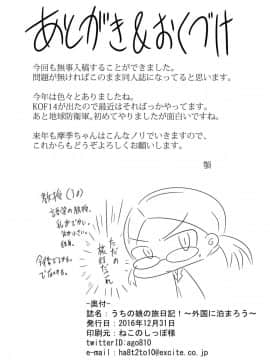 あとがき&おくづけ
今回も無事入稿することができました。
問題が無ければこのまま同人誌になってると思います。
今年は色々とありましたね。
KOF14が出たので最近はそればっかやってます。
あと地球防衛軍、初めてやりましたが面白いですね。
来年も摩季ちゃんはこんなノリでいきますので、
これからもどうぞよろしくお願いします。
顎
教授(30)
語学の教授。
独身。
ただの
-奥付-
誌名：うちの娘の旅日記！～外国に泊まろう～
発行日：2016年12月31日
印刷元：ねこのしっぽ様
twitterID：ago810
e-mail：ha8t2to10@excite.co.jp